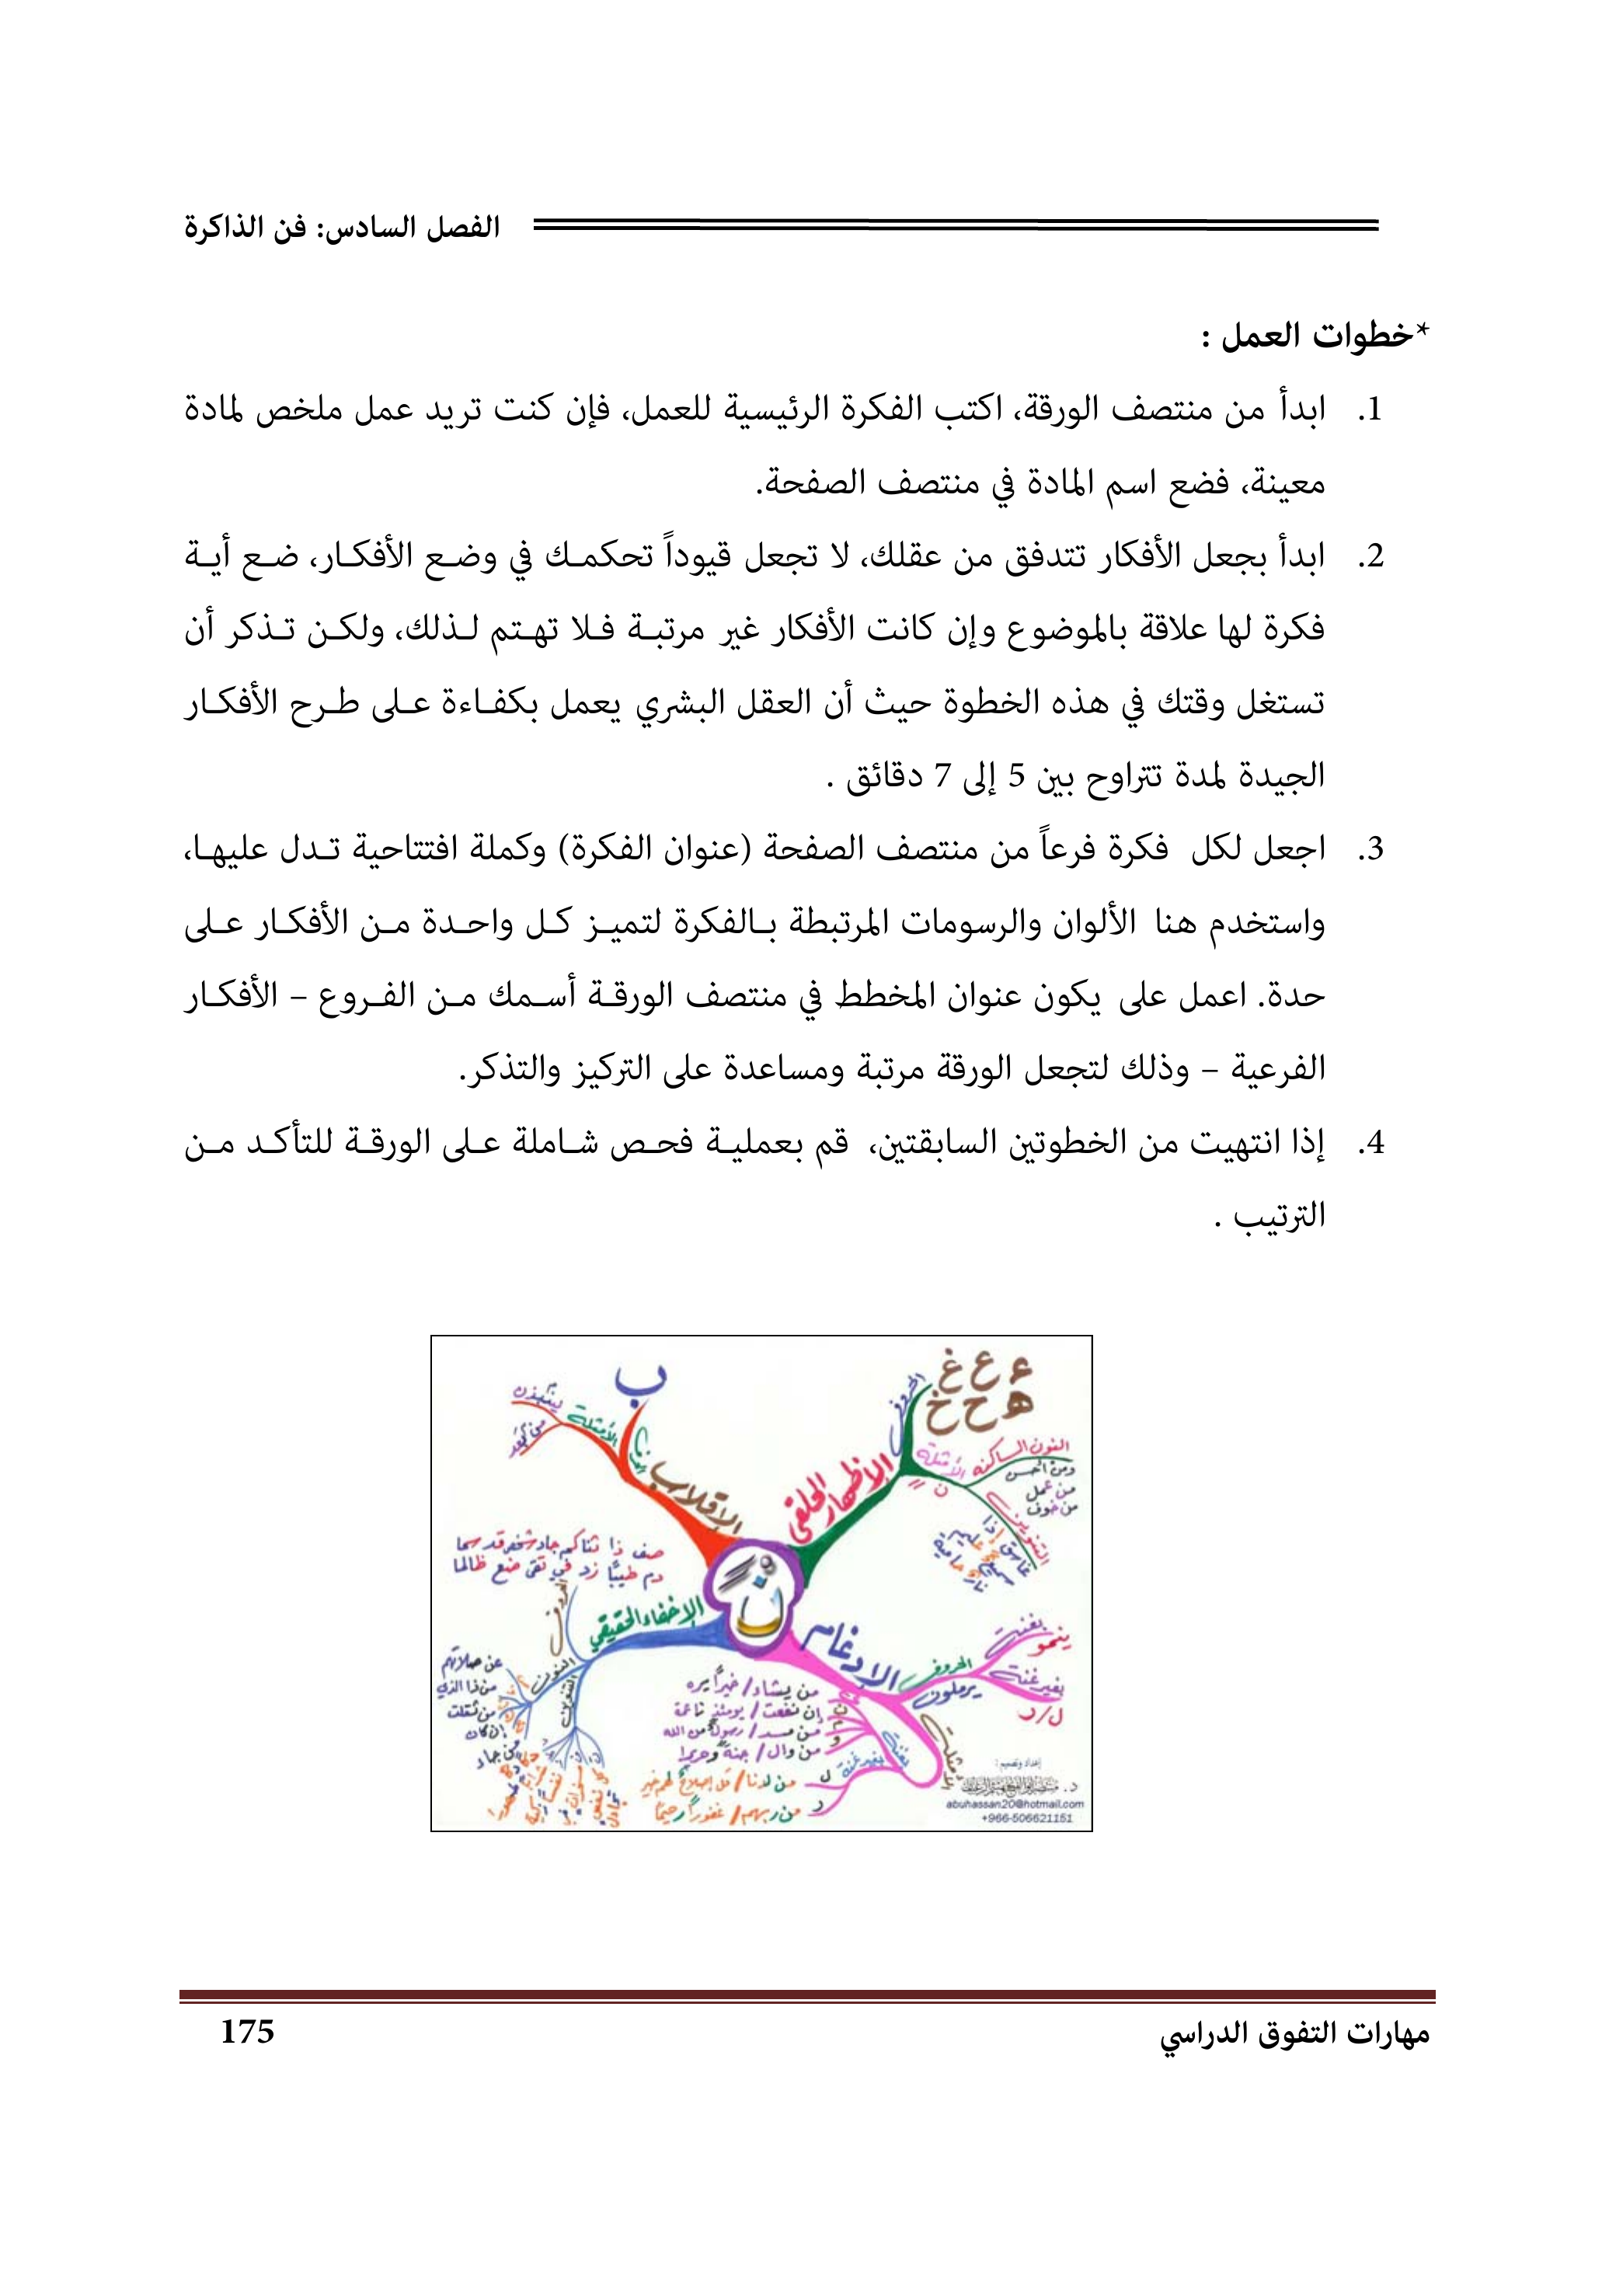 الفصل السادس: فن الذاكرة
*خطوات العمل :
1. ابدأ من منتصف الورقة، اكتب الفكرة الرئيسية للعمل، فإن كنت تريد عمل ملخص لمادة
معينة، فضع اسم المادة في منتصف الصفحة.
2. ابدأ بجعل الأفكار تتدفق من عقلك، لا تجعل قيوداً تحكمك في وضع الأفكار، ضع أية
فكرة لها علاقة بالموضوع وإن كانت الأفكار غير مرتبة فلا تهتم لذلك، ولكن تذكر أن
تستغل وقتك في هذه الخطوة حيث أن العقل البشري يعمل بكفاءة على طرح الأفكار
الجيدة لمدة تتراوح بين 5 إلى 7 دقائق .
3. اجعل لكل فكرة فرعاً من منتصف الصفحة (عنوان الفكرة) وكملة افتتاحية تدل عليها،
واستخدم هنا الألوان والرسومات المرتبطة بالفكرة لتميز كل واحدة من الأفكار على
حدة. اعمل على يكون عنوان المخطط في منتصف الورقة أسمك من الفروع – الأفكار
الفرعية – وذلك لتجعل الورقة مرتبة ومساعدة على التركيز والتذكر.
4. إذا انتهيت من الخطوتين السابقتين، قم بعملية فحص شاملة على الورقة للتأكد من
الترتيب .
ء ع غ
ه ح خ
الحروف
الإظهار الحلقي
الأمثلة
النون الساكنة
من عمل
من خوف
التنوين
ب
الإقلاب
الأمثلة
ن
صف ذا ثنا كم جاد شخص قد سما
دم طيبًا زد في تقى ضع ظالما
الإخفاء الحقيقي
الحروف
النون
التنوين
عن صلاتهم
من ذا الذي
من ثقلت
إن كان
من جاء
الإدغام
الحروف
يرملون
بغنة
ينمو
بغير غنة
ل/ر
الأمثلة
بغنة
بغير غنة
من يشاء/ خيراً يره
إن نفعت/ يومئذ ناعمة
من مسد/ رسول من الله
من وال/ جنة وحريرا
ل
من لدنا/ قل إصلاح لهم خير
ر
من ربهم/ غفوراً رحيمًا
إعداد وتصميم :
abuhassan20@hotmail.com
+966-506621151
مهارات التفوق الدراسي
175